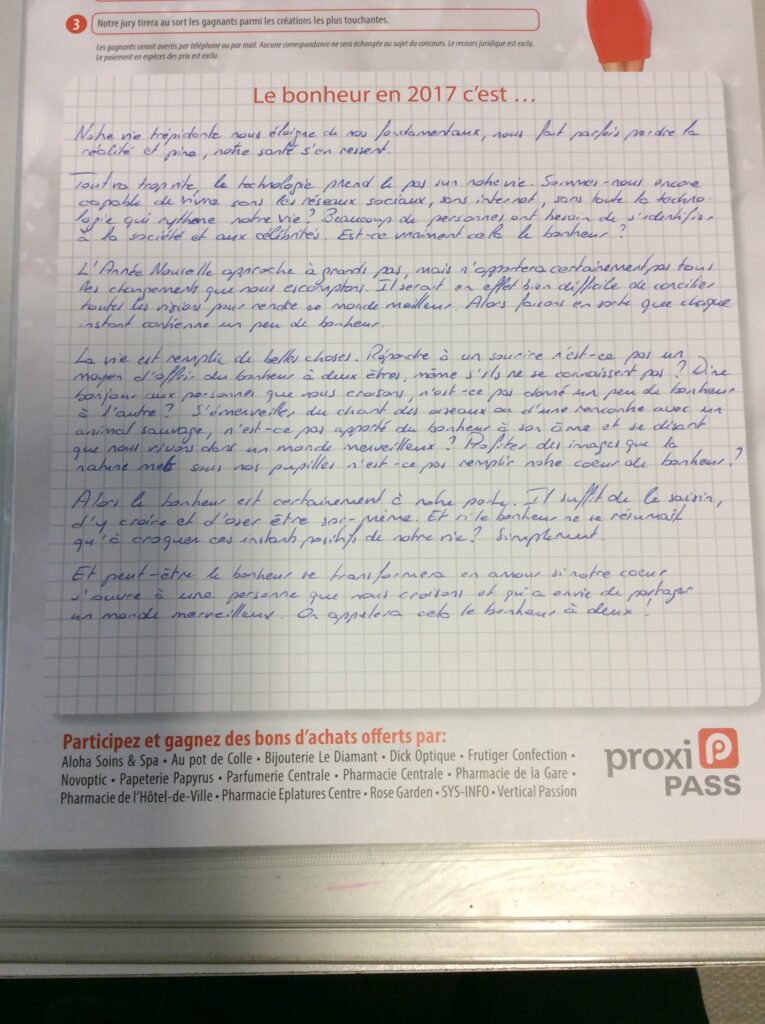 3 Notre jury tirera au sort les gagnants parmi les créations les plus touchantes.
Les gagnants seront avertis par téléphone ou par mail. Aucune correspondance ne sera échangée au sujet du concours. Le recours juridique est exclu.
Le paiement en espèces des prix est exclu.
Le bonheur en 2017 c'est ...
Notre vie trépidante nous éloigne de nos fondamentaux, nous fait parfois perdre la
réalité et pire, notre santé s'en ressent.
Tout va trop vite, la technologie prend le pas sur notre vie. Sommes-nous encore
capable de vivre sans les réseaux sociaux, sans internet, sans toute la techno-
logie qui rythme notre vie ? Beaucoup de personnes ont besoin de s'identifier
à la société et aux célébrités. Est-ce vraiment cela le bonheur ?
L'Année Nouvelle approche à grands pas, mais n'apportera certainement pas tous
les changements que nous escomptons. Il serait en effet bien difficile de concilier
toutes les visions pour rendre ce monde meilleur. Alors faisons en sorte que chaque
instant contienne un peu de bonheur.
La vie est remplie de belles choses. Répondre à un sourire n'est-ce pas un
moyen d'offrir du bonheur à deux êtres, même s'ils ne se connaissent pas ? Dire
bonjour aux personnes que nous croisons, n'est-ce pas donné un peu de bonheur
à l'autre ? S'émerveiller du chant des oiseaux ou d'une rencontre avec un
animal sauvage, n'est-ce pas apporté du bonheur à son âme et se disant
que nous vivons dans un monde merveilleux ? Profiter des images que la
nature met sous nos pupilles n'est-ce pas remplir notre coeur de bonheur ?
Alors le bonheur est certainement à notre porte. Il suffit de le saisir,
d'y croire et d'oser être soi-même. Et si le bonheur ne se résumait
qu'à croquer ces instants positifs de notre vie ? Simplement.
Et peut-être le bonheur se transformera en amour si notre coeur
s'ouvre à une personne que nous croisons et qui a envie de partager
un monde merveilleux. On appelera cela le bonheur à deux !
Participez et gagnez des bons d'achats offerts par:
Aloha Soins & Spa • Au pot de Colle • Bijouterie Le Diamant • Dick Optique • Frutiger Confection •
Novoptic • Papeterie Papyrus • Parfumerie Centrale • Pharmacie Centrale • Pharmacie de la Gare •
Pharmacie de l'Hôtel-de-Ville • Pharmacie Eplatures Centre • Rose Garden • SYS-INFO • Vertical Passion
proxi
PASS